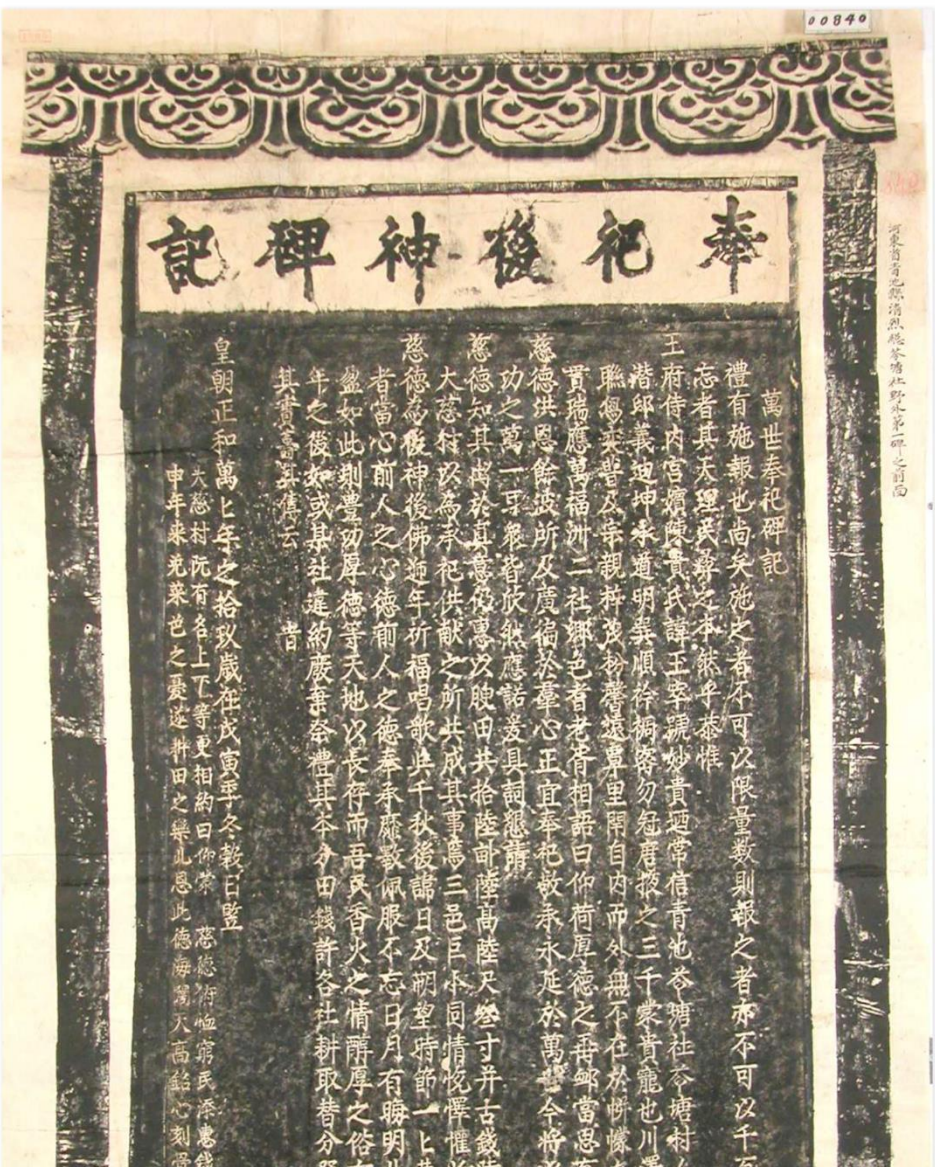 00840
奉祀後神碑記
萬世奉祀碑記
禮有施報也尚矣施之者不可以限量數則報之者亦不可以千百
忘者其天理民彝之本然乎恭惟
王府侍內宮嬪陳貴氏諱王宰號妙貴迺常信青池苓塘社苓塘村
潜邸義迪坤承道明巽順衿裯密勿冠唐掖之三千蒙貴寵也川澤
聯芻葉普及宗親梓茂枌馨遠覃里閈自內而外無不在於帡幪
貫瑞應萬福洲二社鄉邑耆老胥相語曰仰荷厚德之再卹當思
慈德洪恩餘波所及廣徧於羣心正宜奉祀敬承永延於萬世今將
功之萬一乎衆皆欣然應諾爰具詞懇請
慈德知其出於真意仍惠以腴田共拾陸畝陸高陸尺叄寸并古錢
大慈村以爲承祀供献之所共成其事焉三邑巨小同情悅懌
慈德爲後神後佛遞年祈福唱歌與千秋後諱日及朔望時節一
者當心前人之心德前人之德奉承靡斁佩服不忘日月有晦明
盟如此則豊功厚德等天地以長存而吾民香火之情醇厚之俗
年之後如或某社違約廢棄茶禮其本分田錢許各社耕取替分
其賽壽其舊云 旹
皇朝正和萬七年之拾玖歲在戊寅季冬穀日竪
大慈村阮有名上下等更相約曰仰蒙 慈德府恤窮民添惠錢
申年來免菜色之憂遂耕田之樂此恩此德海濶天高銘心刻骨
河東省青池縣清烈總苓塘社野外第一碑之前面